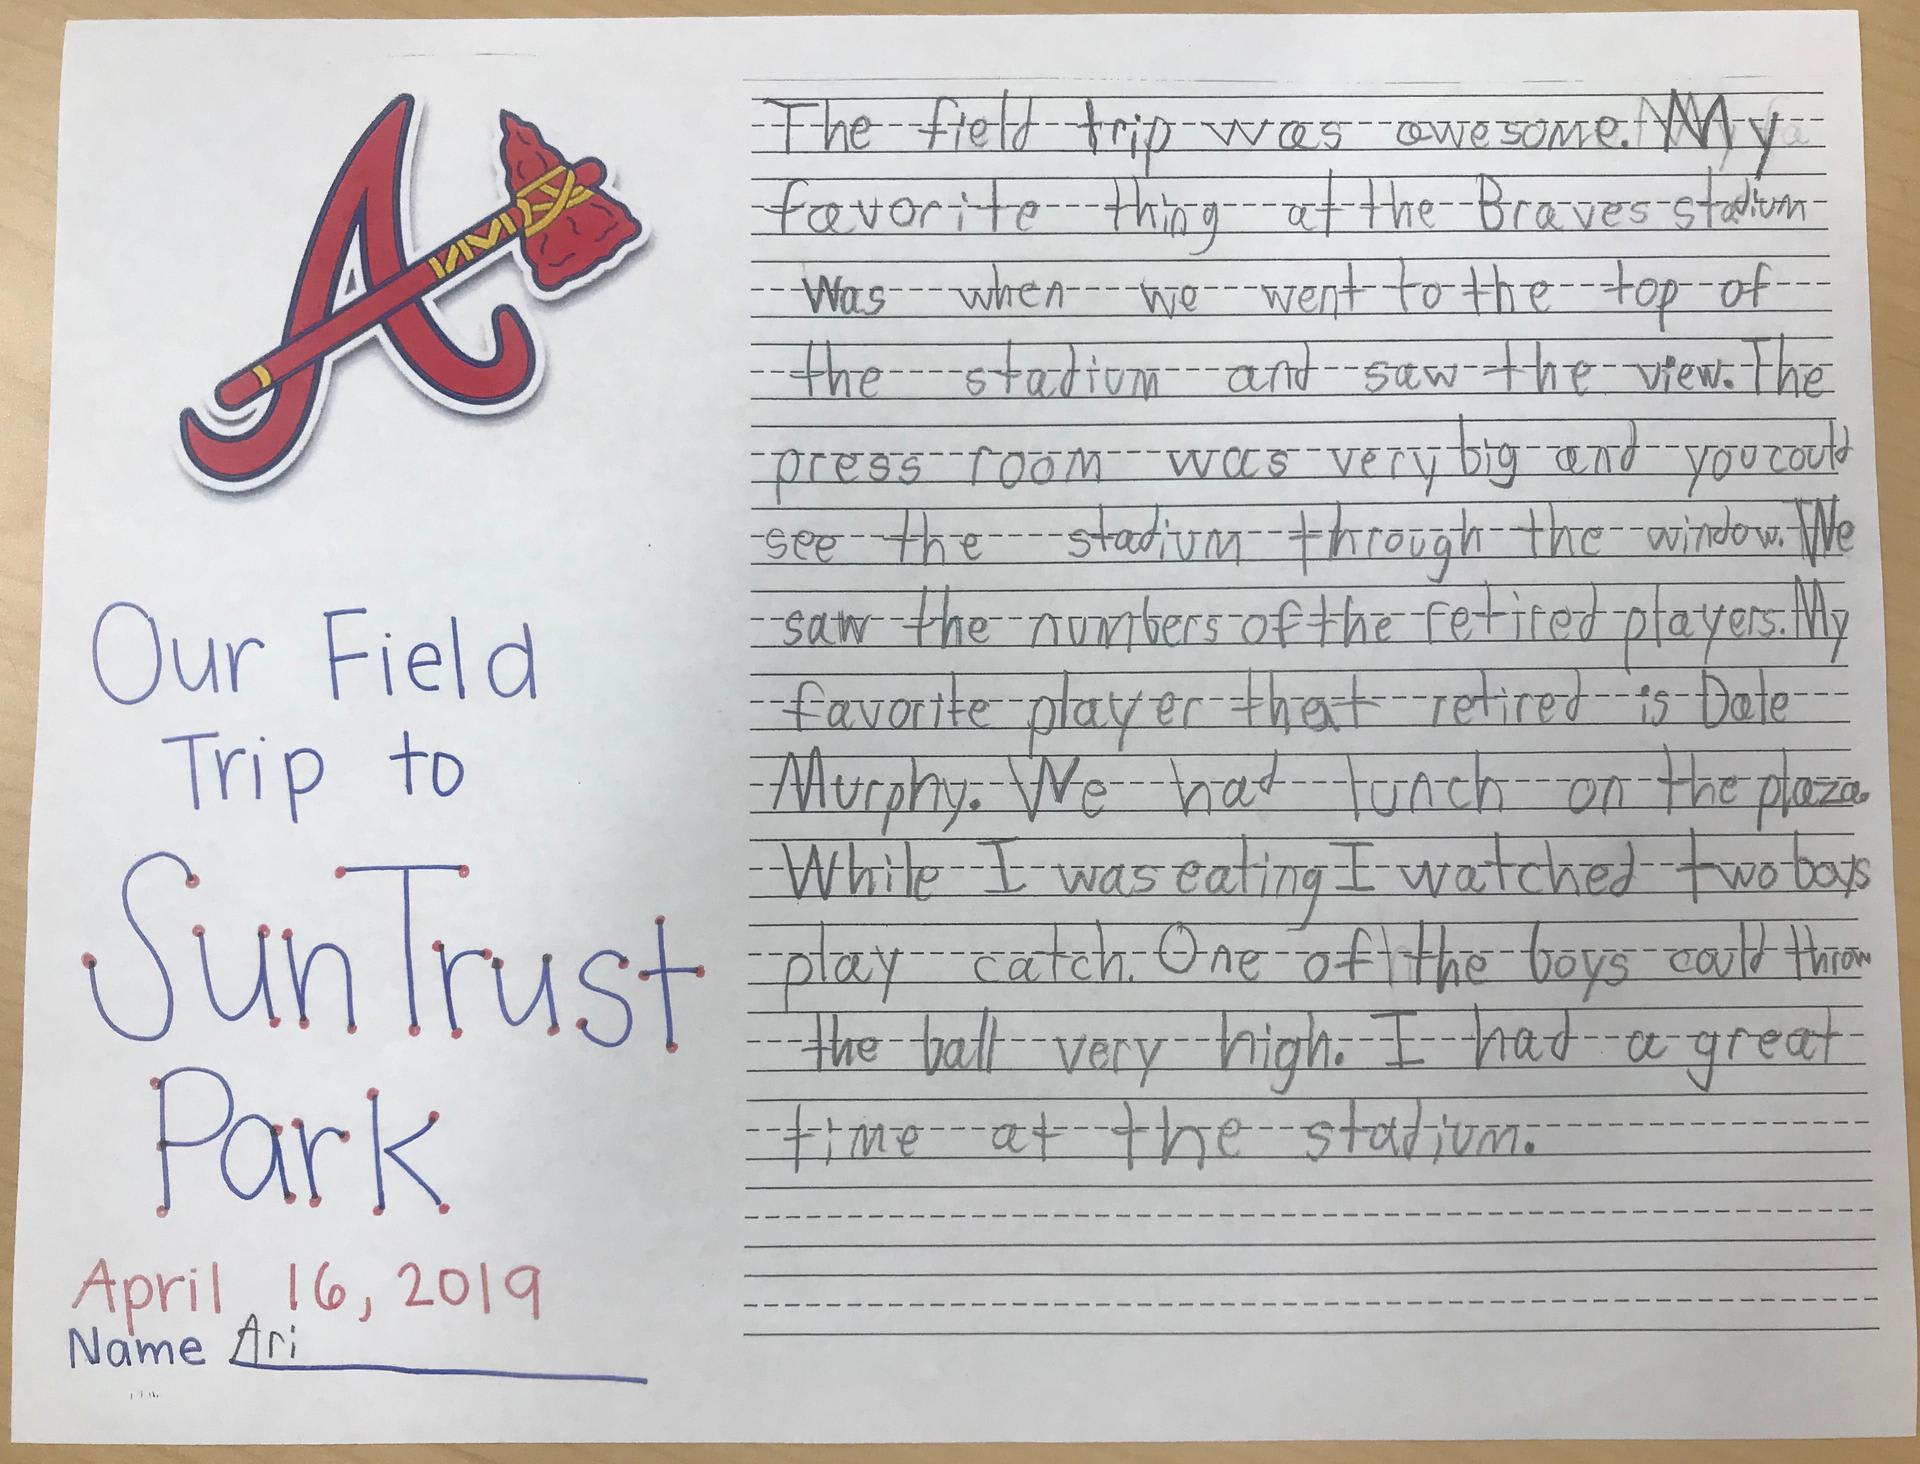 Our Field
Trip to
SunTrust
Park
April 16, 2019
Name Ari
The field trip was awesome. My
favorite thing at the Braves stadium
Was when we went to the top of
the stadium and saw the view. The
press room was very big and you could
see the stadium through the window. We
saw the numbers of the retired players. My
favorite player that retired is Dale
Murphy. We had lunch on the plaza.
While I was eating I watched two boys
play catch. One of the boys could throw
the ball very high. I had a great
time at the stadium.